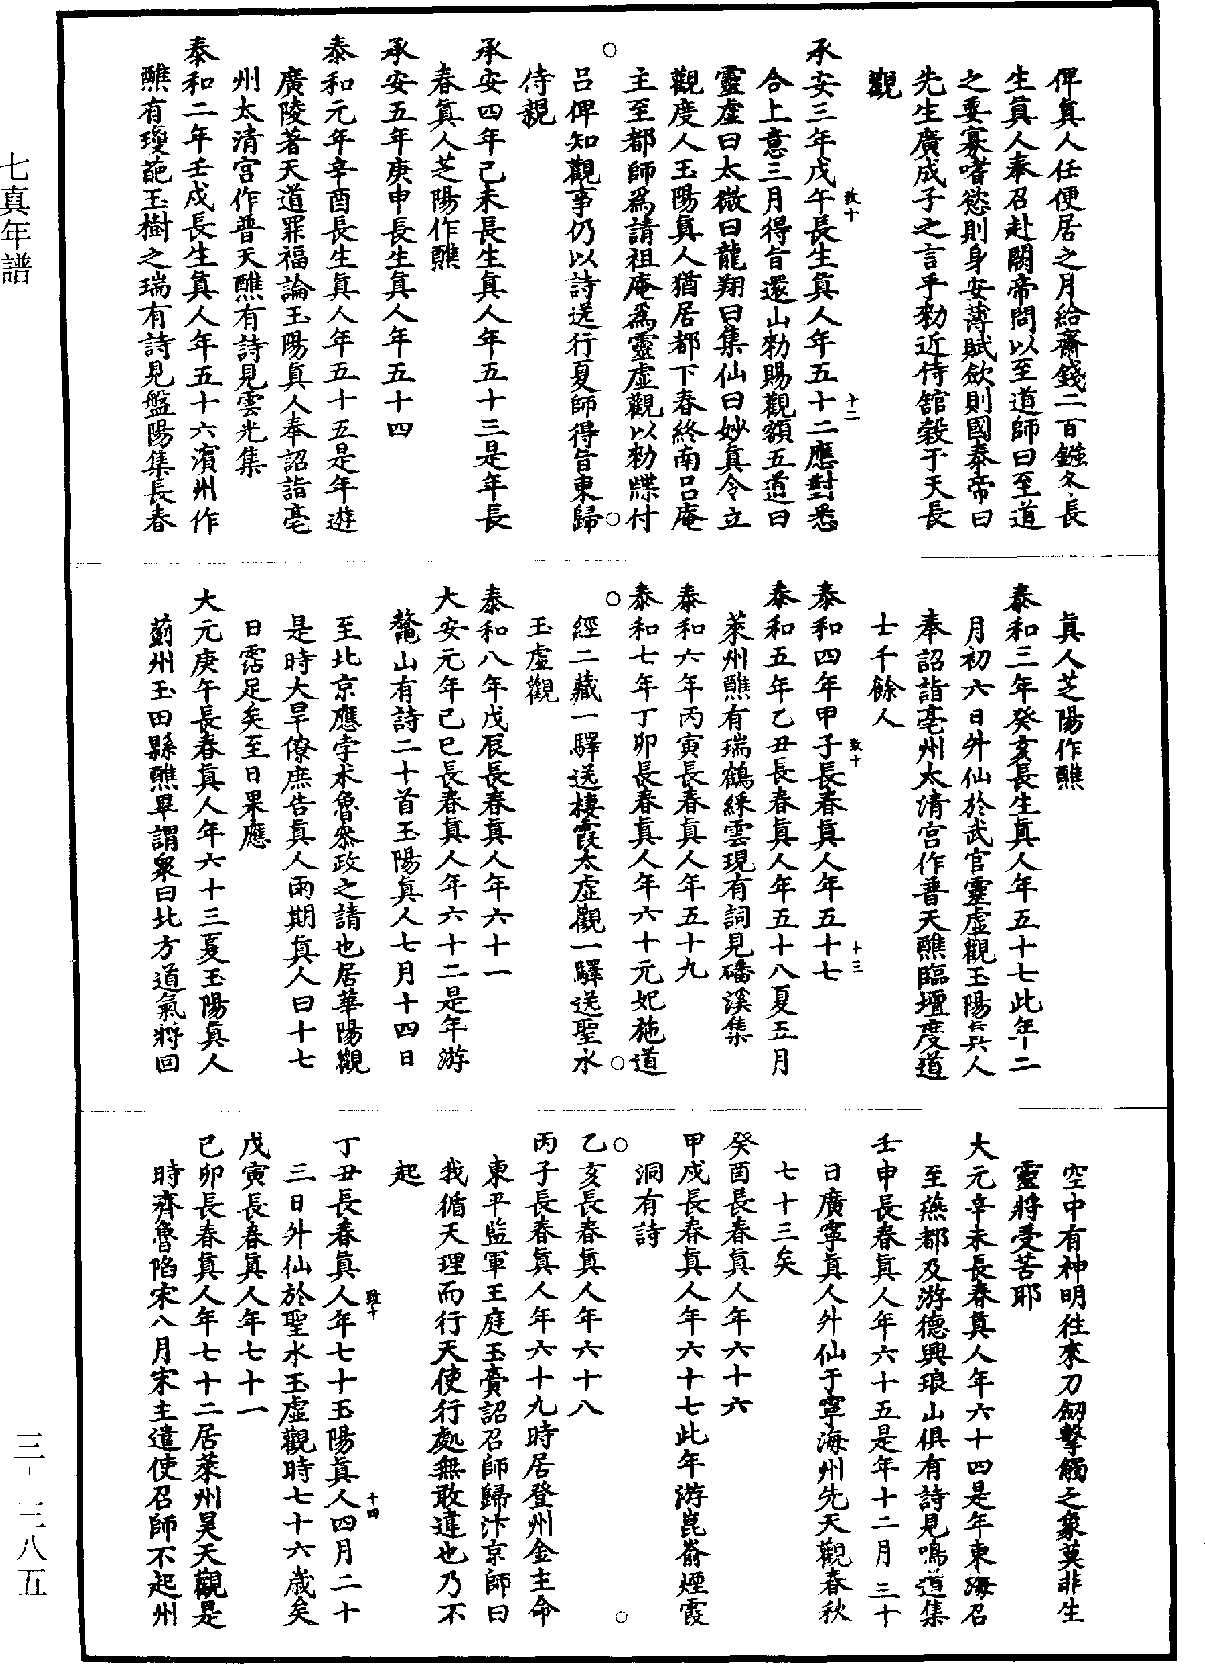 七真年譜
俾真人任便居之月給齋錢二百鏹冬長
生真人奉召赴闕帝問以至道師曰至道
之要寡嗜慾則身安薄賦斂則國泰帝曰
先生廣成子之言乎勑近侍舘穀于天長
觀
承安三年戊午長生真人年五十二應對悉
合上意三月得旨還山勑賜觀額五道曰
靈虛曰太微曰龍翔曰集仙曰妙真令立
觀度人玉陽真人猶居都下春終南呂庵
主至都師爲請祖庵爲靈虛觀以勑牒付
呂俾知觀事仍以詩送行夏師得旨東歸
侍親
承安四年己未長生真人年五十三是年長
春真人芝陽作醮
承安五年庚申長生真人年五十四
泰和元年辛酉長生真人年五十五是年遊
廣陵著天道罪福論玉陽真人奉詔詣亳
州太清宮作普天醮有詩見雲光集
泰和二年壬戌長生真人年五十六濱州作
醮有瓊葩玉樹之瑞有詩見盤陽集長春
真人芝陽作醮
泰和三年癸亥長生真人年五十七此年二
月初六日升仙於武官靈虛觀玉陽真人
奉詔詣亳州太清宮作普天醮臨壇度道
士千餘人
泰和四年甲子長春真人年五十七
泰和五年乙丑長春真人年五十八夏五月
萊州醮有瑞鶴綵雲現有詞見磻溪集
泰和六年丙寅長春真人年五十九
泰和七年丁卯長春真人年六十元妃施道
經二藏一驛送棲霞太虛觀一驛送聖水
玉虛觀
泰和八年戊辰長春真人年六十一
大安元年己巳長春真人年六十二是年游
鼇山有詩二十首玉陽真人七月十四日
至北京應孛朮魯參政之請也居華陽觀
是時大旱僚庶告真人雨期真人曰十七
日霑足矣至日果應
大元庚午長春真人年六十三夏玉陽真人
薊州玉田縣醮畢謂衆曰北方道氣將回
空中有神明往來刀劒擊觸之象莫非生
靈將受苦耶
大元辛未長春真人年六十四是年東海召
至燕都及游德興琅山俱有詩見鳴道集
壬申長春真人年六十五是年十二月三十
日廣寧真人升仙于寧海州先天觀春秋
七十三矣
癸酉長春真人年六十六
甲戌長春真人年六十七此年游崑嵛煙霞
洞有詩
乙亥長春真人年六十八
丙子長春真人年六十九時居登州金主命
東平監軍王庭玉賫詔召師歸汴京師曰
我循天理而行天使行處無敢違也乃不
起
丁丑長春真人年七十玉陽真人四月二十
三日升仙於聖水玉虛觀時七十六歲矣
戊寅長春真人年七十一
己卯長春真人年七十二居萊州昊天觀是
時齊魯陷宋八月宋主遣使召師不起州
致十
十二
致十
十三
致十
十四
三-三八五